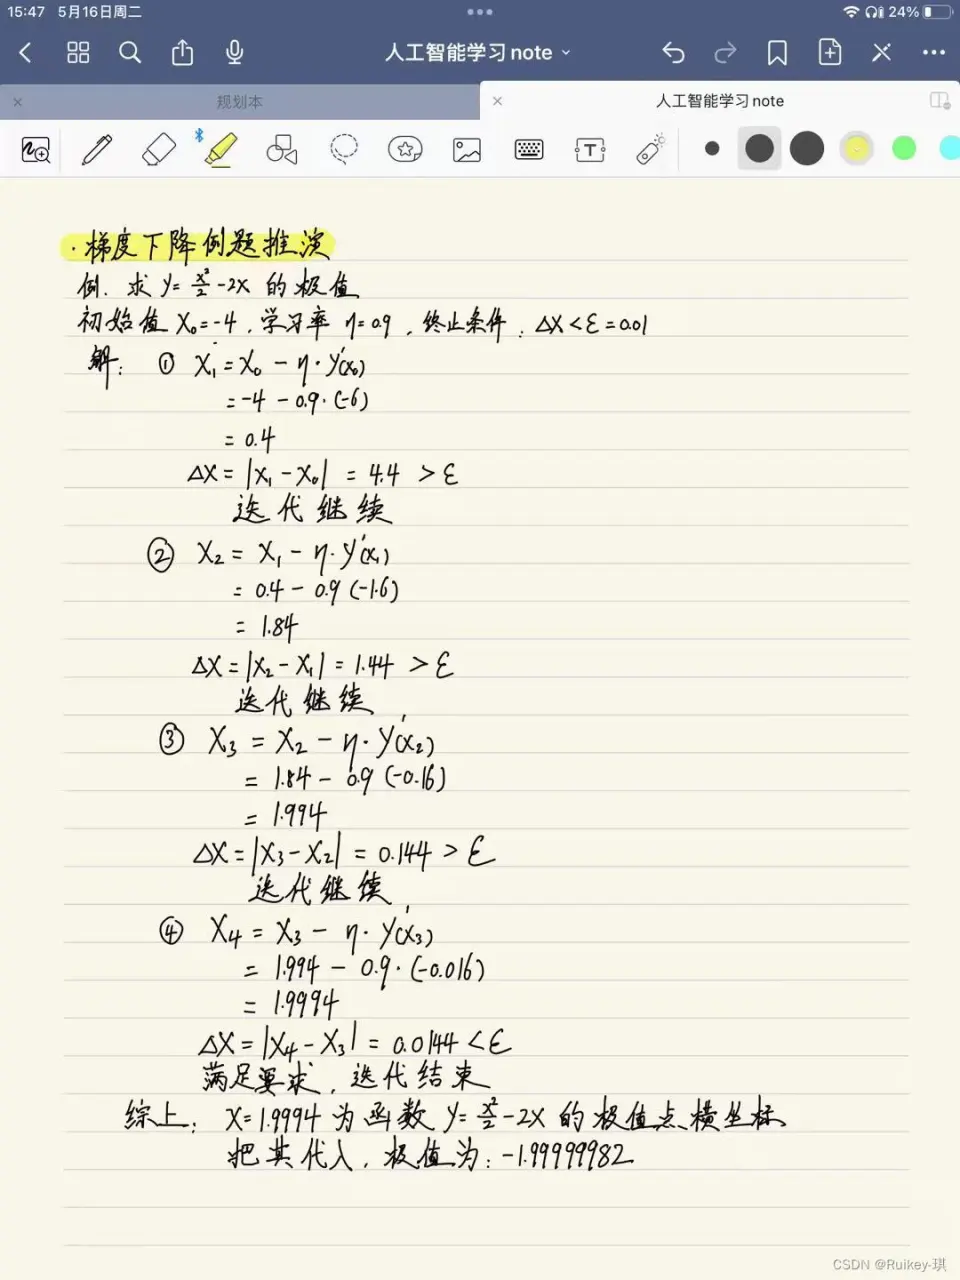 15:47 5月16日周二
24%
人工智能学习note
规划本
人工智能学习note
·梯度下降例题推演
例. 求 y=x²/2-2x 的极值
初始值 X₀=-4, 学习率 η=0.9, 终止条件: ΔX<ε=0.01
解: ① X₁=X₀-η·y'(x₀)
=-4-0.9·(-6)
=0.4
ΔX=|X₁-X₀|=4.4>ε
迭代继续
② X₂=X₁-η·y'(x₁)
=0.4-0.9(-1.6)
=1.84
ΔX=|X₂-X₁|=1.44>ε
迭代继续
③ X₃=X₂-η·y'(x₂)
=1.84-0.9(-0.16)
=1.994
ΔX=|X₃-X₂|=0.144>ε
迭代继续
④ X₄=X₃-η·y'(x₃)
=1.994-0.9·(-0.016)
=1.9994
ΔX=|X₄-X₃|=0.0144<ε
满足要求, 迭代结束
综上: X=1.9994 为函数 y=x²/2-2x 的极值点横坐标
把其代入, 极值为: -1.99999982
CSDN @Ruikey-琪